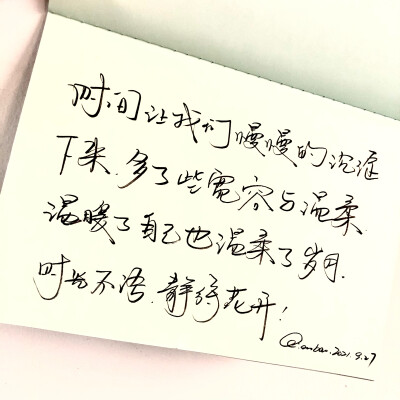 时间让我们慢慢的沉淀
下来,多了些宽容与温柔.
温暖了自己也温柔了岁月.
时光不语.静待花开!
2021.9.27